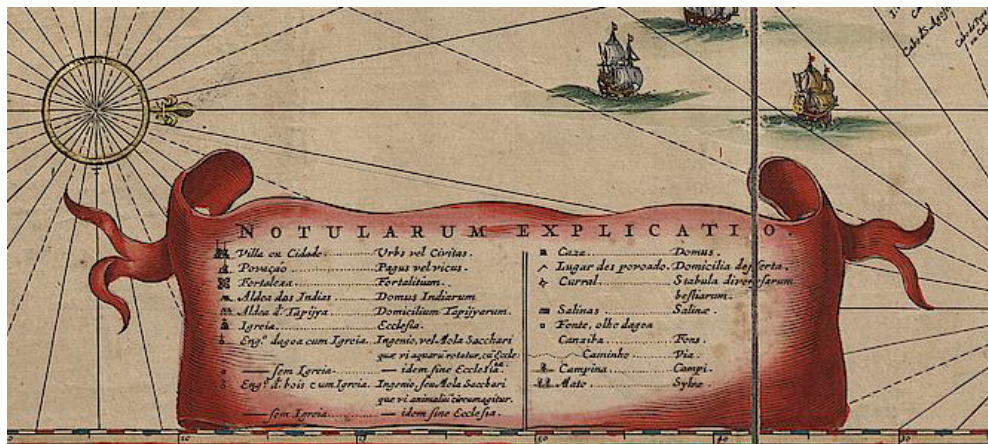 NOTULARUM EXPLICATIO.
Villa ou Cidade. Urbs vel Civitas.
Povaçao Pagus vel vicus.
Fortalexa Fortalitium.
Aldea das Indias Domus Indiarum
Aldea d. Tapijya Domicilium Tapijyarum.
Igreia Ecclesia.
Eng.º dagoa cum Igreia. Ingenio, vel Mola Sacchari
que vi aquaru rotatur, cū Eccle-
sem Igreia idem sine Ecclesia.
Eng.º d. bois c um Igreia. Ingenio, seu Mola Sacchari
que vi animaliū circumagitur.
sem Igreia idem sine Ecclesia.
Caza Domus.
Lugar des povoado. Domicilia deserta.
Curral Stabula diversarum
bestiarum.
Salinas Salinæ.
Fonte, olho dagoa
Canaiba Fons.
Caminho Via.
Campina Campi.
Mato Sylvæ
Cabo de S.
10
50